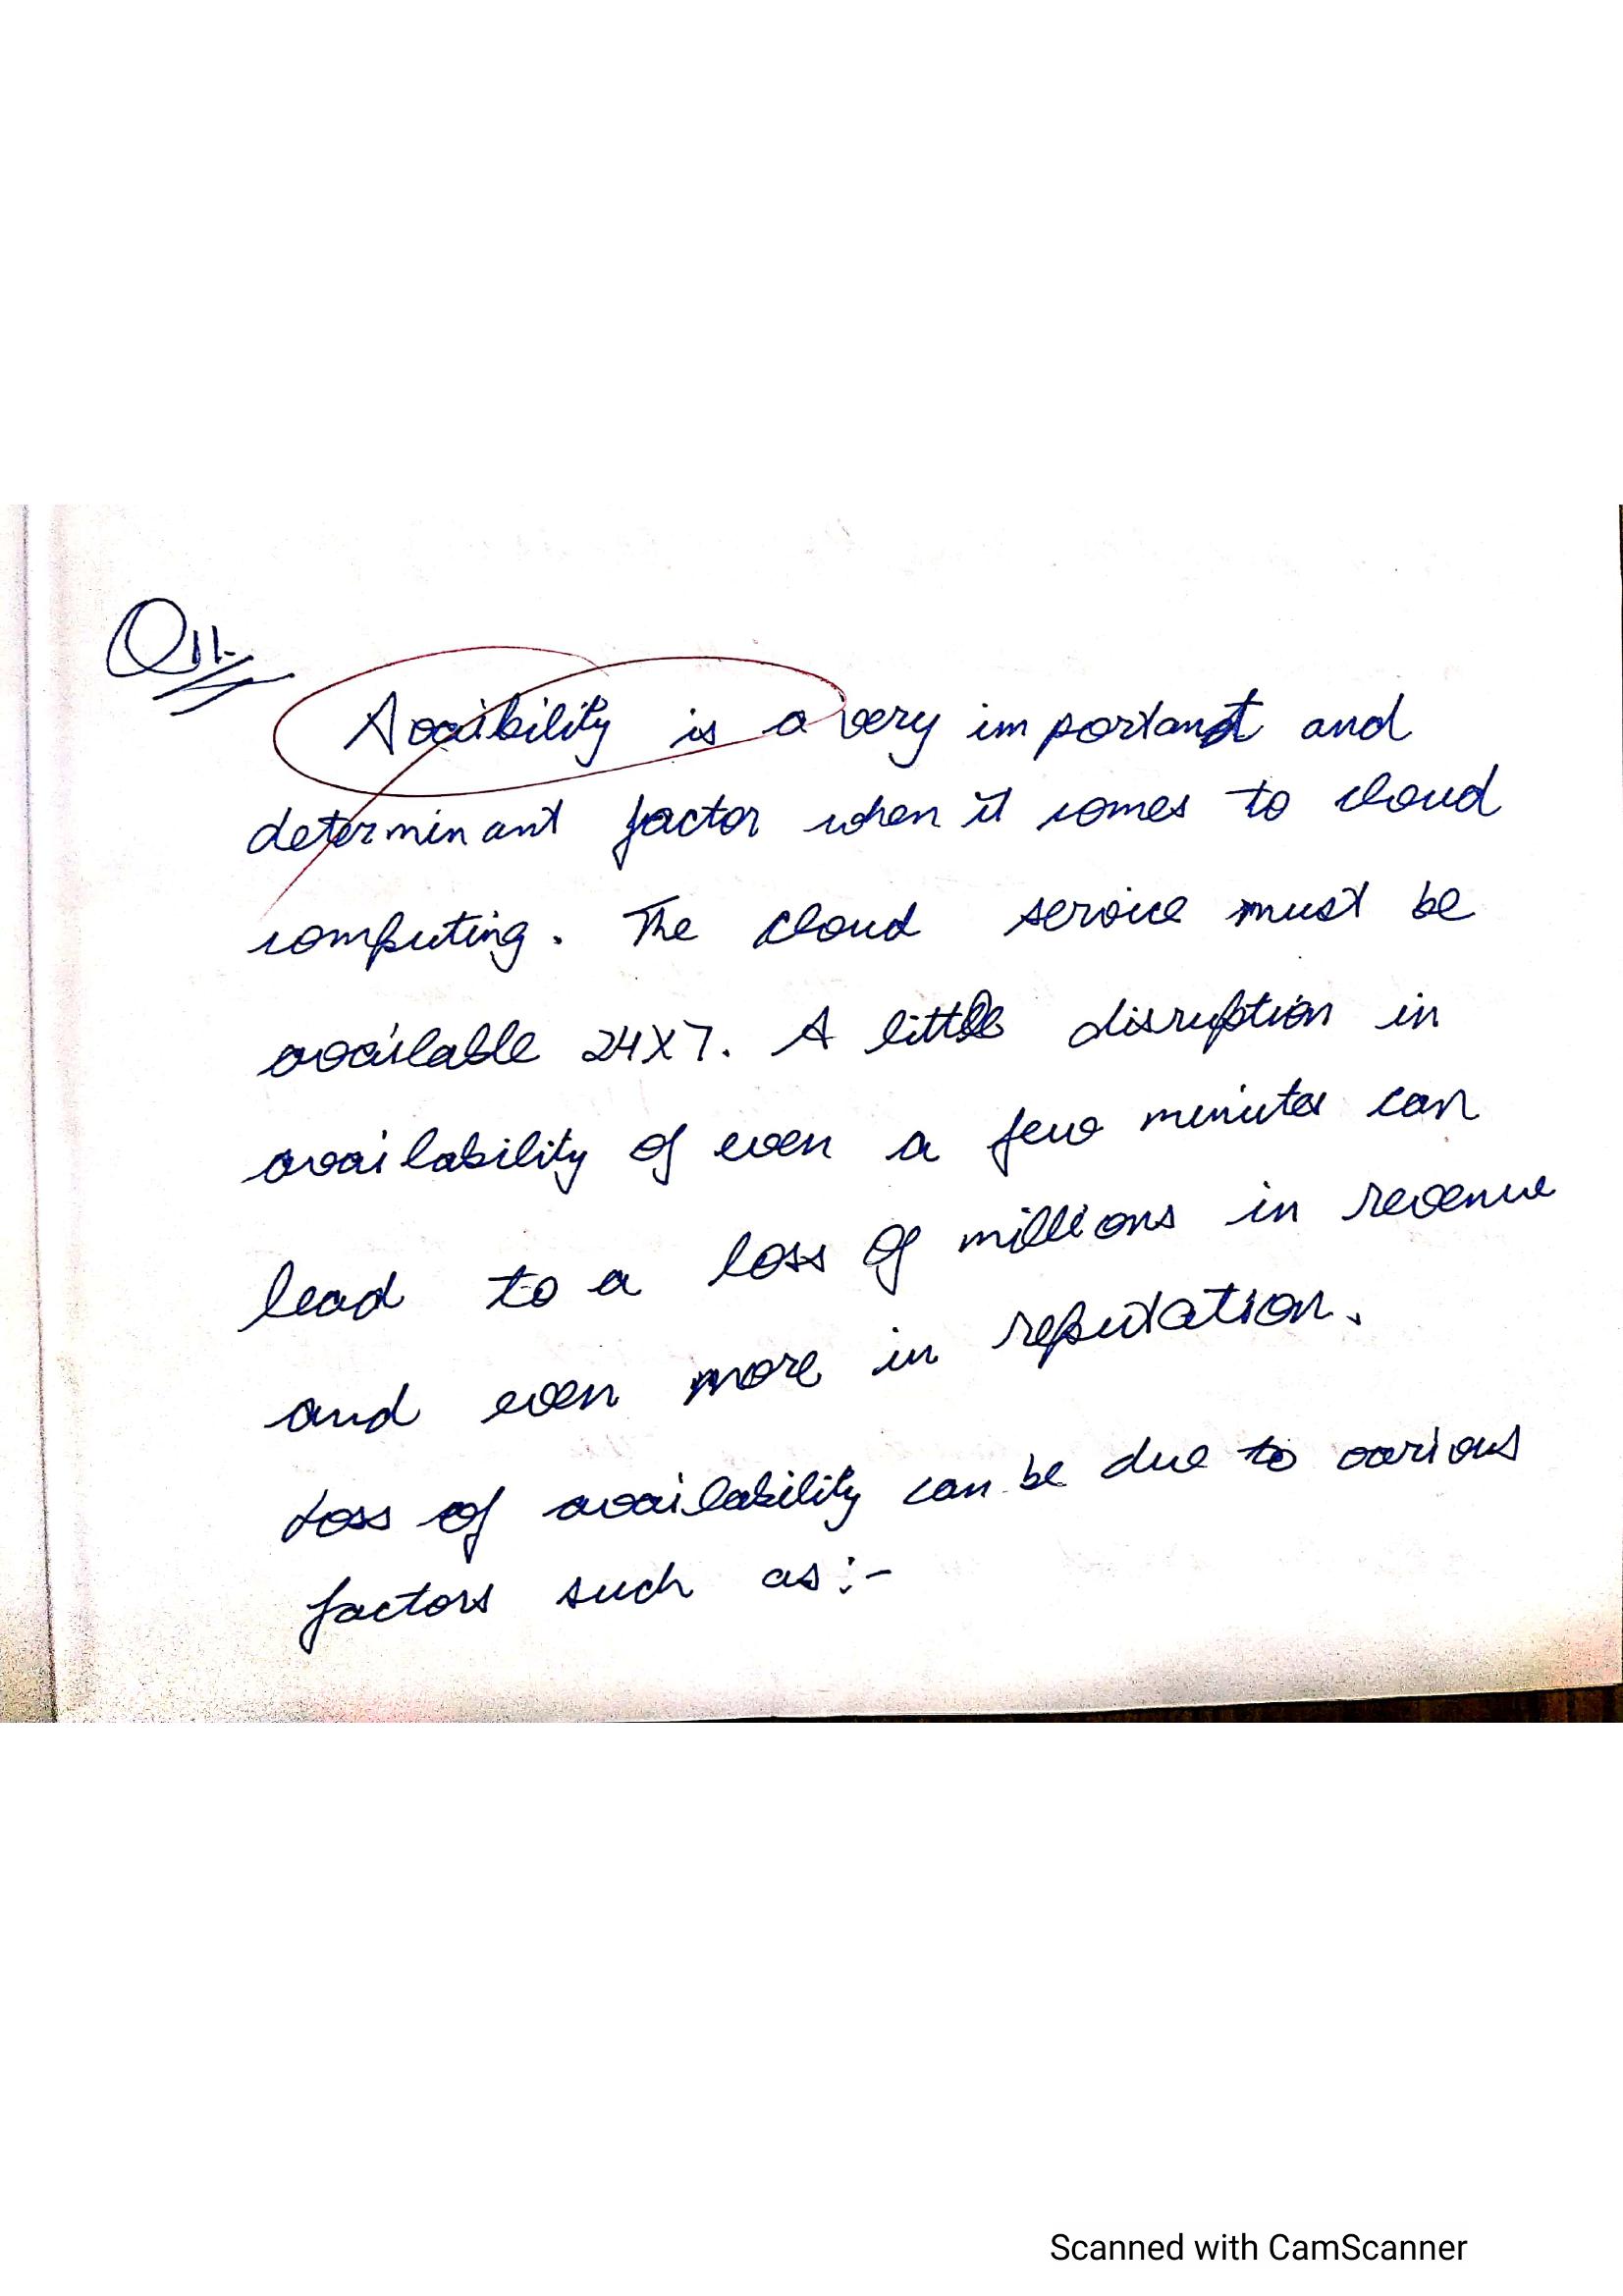 Q11.
Avaibility is a very important and
determinant factor when it comes to cloud
computing. The cloud service must be
available 24X7. A little disruption in
availability of even a few minutes can
lead to a loss of millions in revenue
and even more in reputation.
Loss of availability can be due to various
factors such as:-
Scanned with CamScanner